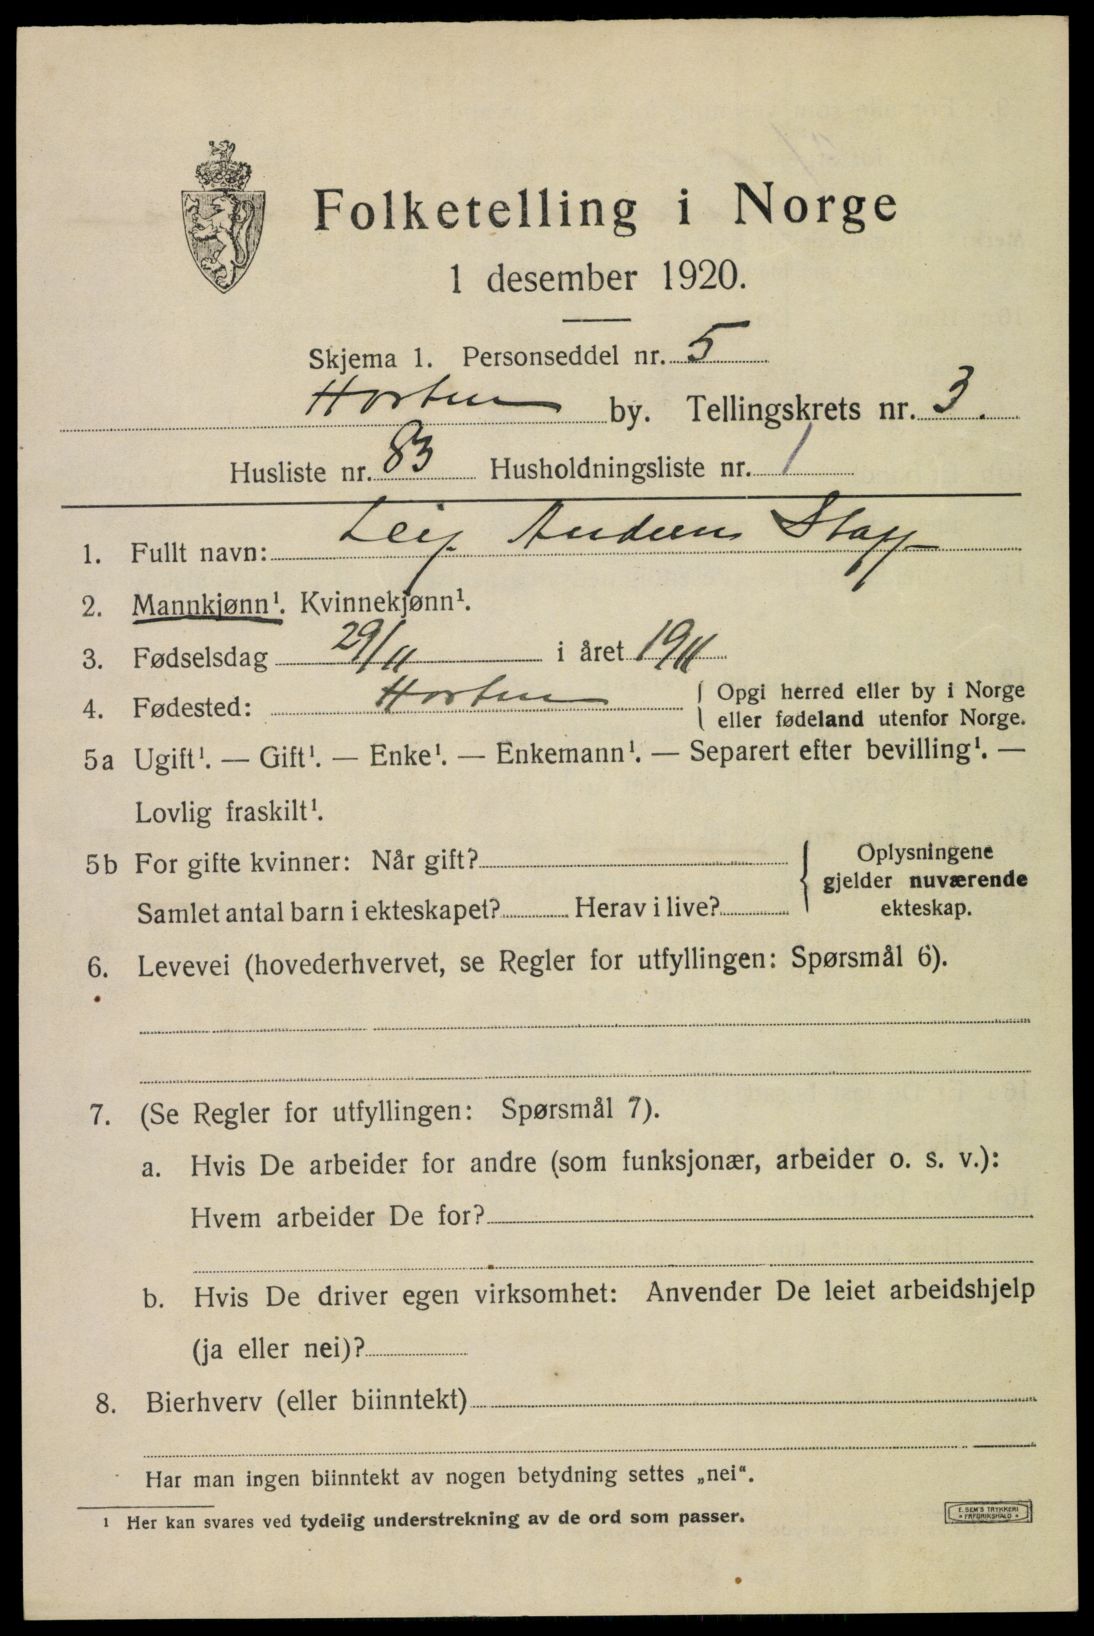 Folketelling i Norge
1 desember 1920.
Skjema 1. Personseddel nr. 5
Horten by. Tellingskrets nr. 3.
Husliste nr. 83 Husholdningsliste nr. 1
1. Fullt navn: Leif Anders
2. Mannkjønn¹. Kvinnekjønn¹.
3. Fødselsdag 29/11 i året 1911
4. Fødested: Horten { Opgi herred eller by i Norge
eller fødeland utenfor Norge.
5a Ugift¹. — Gift¹. — Enke¹. — Enkemann¹. — Separert efter bevilling¹. —
Lovlig fraskilt¹.
5b For gifte kvinner: Når gift? { Oplysningene
gjelder nuværende
Samlet antal barn i ekteskapet? Herav i live? ekteskap.
6. Levevei (hovederhvervet, se Regler for utfyllingen: Spørsmål 6).
7. (Se Regler for utfyllingen: Spørsmål 7).
a. Hvis De arbeider for andre (som funksjonær, arbeider o. s. v.):
Hvem arbeider De for?
b. Hvis De driver egen virksomhet: Anvender De leiet arbeidshjelp
(ja eller nei)?
8. Bierhverv (eller biinntekt)
Har man ingen biinntekt av nogen betydning settes „nei“.
¹ Her kan svares ved tydelig understrekning av de ord som passer.
E. SEM'S TRYKKERI
• FREDRIKSHALD •